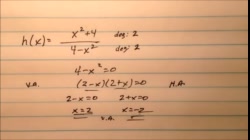 h(x) = x²+4 deg: 2
4-x² deg: 2
4-x²=0
V.A. (2-x)(2+x)=0 H.A.
2-x=0 2+x=0
x=2 x=-2
V.A.